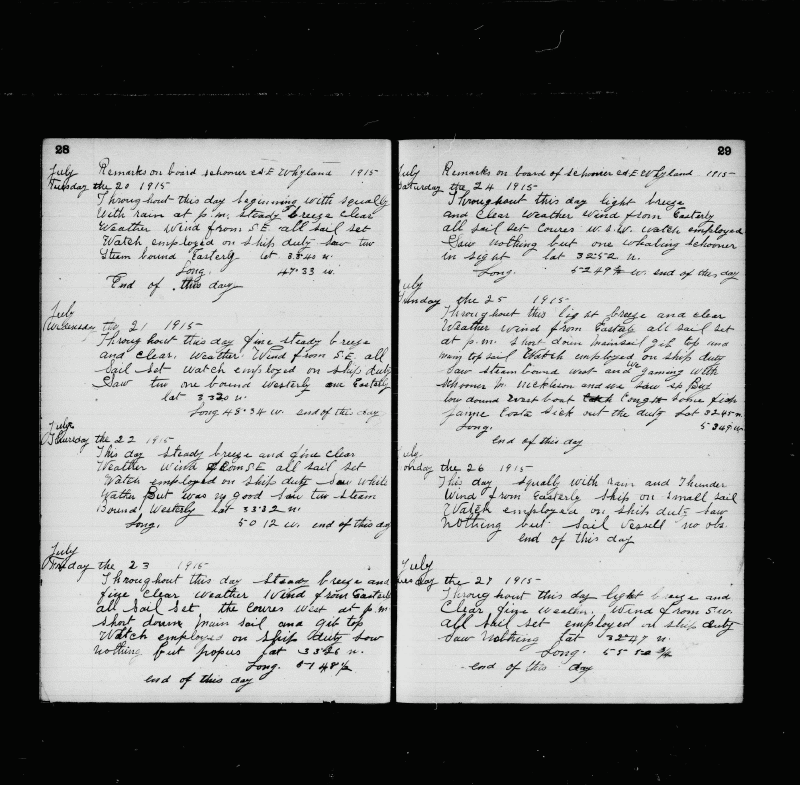 28
July Remarks on board schooner A.E Whyland 1915
Tuesday the 20 1915
Throughout this day beginning with squally
With rain at p.m. steady breeze clear
Weather Wind from S.E. all sail set
Watch employed on ship duty saw two
Steam bound Easterly lat 33 40 n.
Long. 47.33 w.
End of this day
July
Wednesday the 21 1915
Throughout this day fine steady breeze
and clear. Weather. Wind from S.E. all
Sail set watch employed on ship duty
Saw two one bound Westerly one Easterly
lat 33 20 n.
Long 48.34 w. end of the day
July
Thursday the 22 1915
This day steady breeze and fine clear
Weather Wind from SE all sail set
Watch employed on ship duty Saw white
Watter But was no good Saw two steam
Bound Westerly lat 33 32 n.
Long. 50 12 w. end of this day
July
Friday the 23 1915
Throughout this day steady breeze and
fine clear weather Wind from Easterly
all Sail Set the coures West at p.m
short down main sail and gib top
Watch employed on ship duty saw
nothing but popus lat 33 26 n.
Long. 51 48 1/2
end of this day
29
July Remarks on board of schooner A.E Whyland 1915
Saturday the 24 1915
Throughout this day light breeze
and clear Weather Wind from Easterly
all sail set Coures W.S.W. watch employed
Saw nothing but one whaling schooner
in sight lat 32 52 n.
Long. 52 49 1/2 W. end of this day
July
Sunday the 25 1915
Throughout this light breeze and clear
Weather wind from Easterly all sail set
at p.m. short down mainsail gib top and
main top sail Watch employed on ship duty
Saw steam bound west and we gaming with
schooner and we saw sp But
low dound boat some fish
Costa sick out the duty Lat 32 45 n.
Long. 53 49 w.
end of this day
July
Monday the 26 1915
This day squally with rain and Thunder
Wind from Easterly ship on small sail
Watch employed on ship duty Saw
nothing but Sail Vessell no obs
end of this day
July
Tuesday the 27 1915
Throughout this day light breeze and
Clear fine Weather. Wind from S.W.
all sail set employed on ship duty
Saw nothing lat 32 47 n.
Long. 55 50 3/4
end of this day